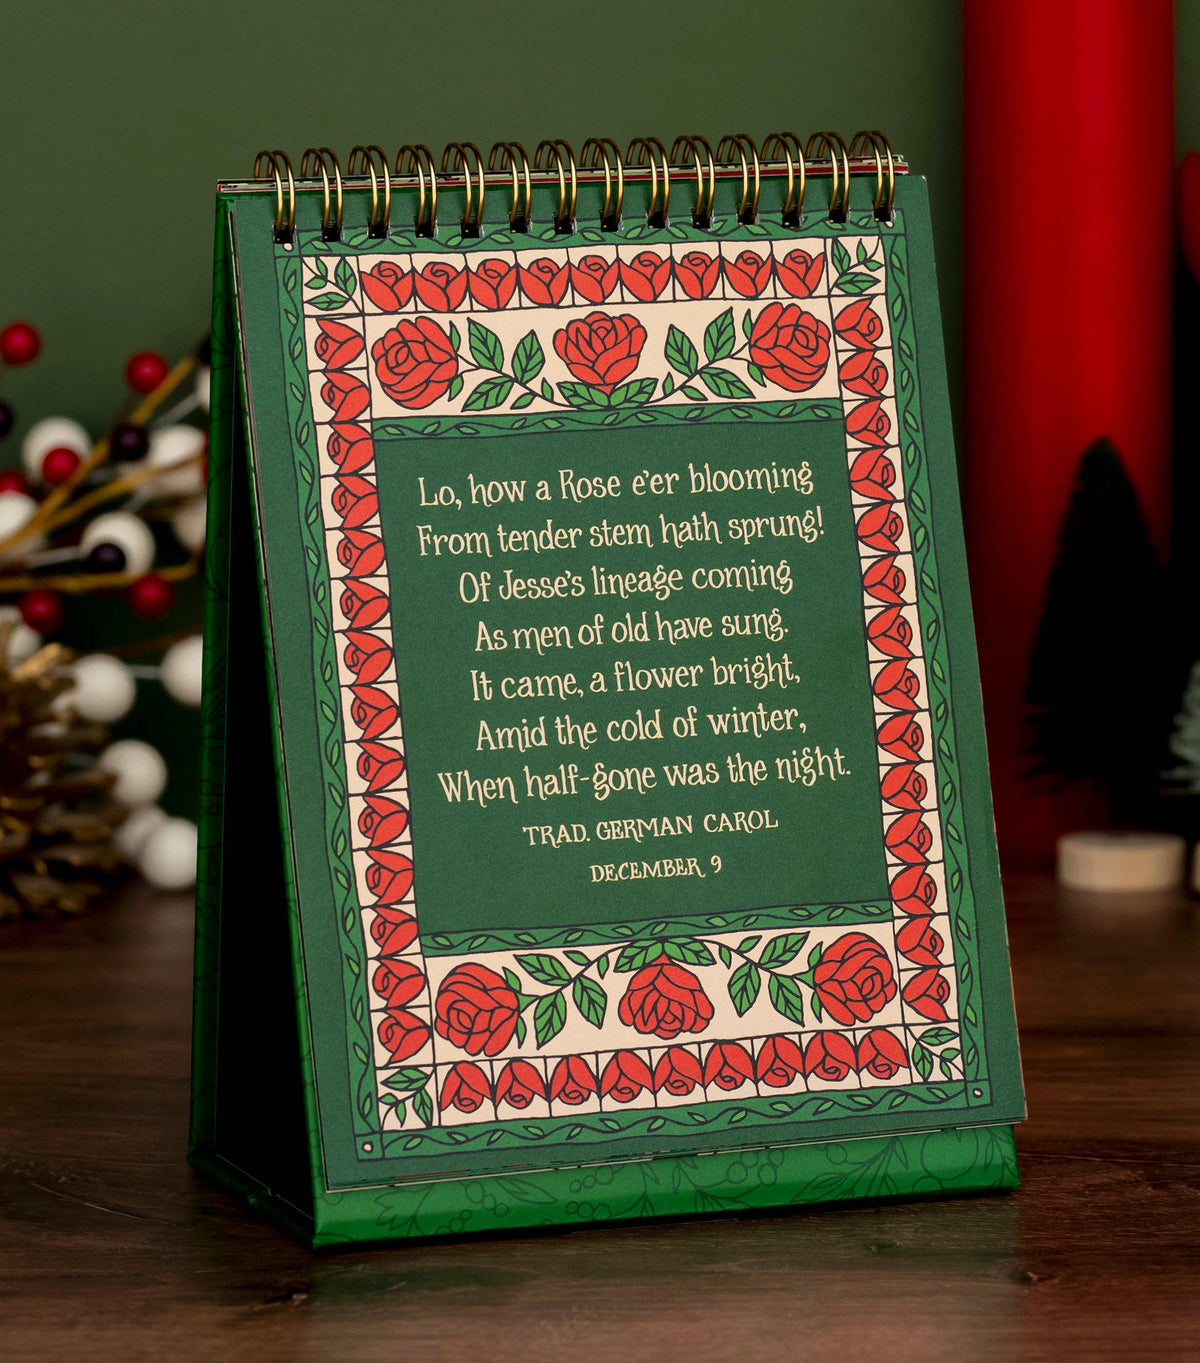 Lo, how a Rose e'er blooming
From tender stem hath sprung!
Of Jesse's lineage coming
As men of old have sung.
It came, a flower bright,
Amid the cold of winter,
When half-gone was the night.
TRAD. GERMAN CAROL
DECEMBER 9